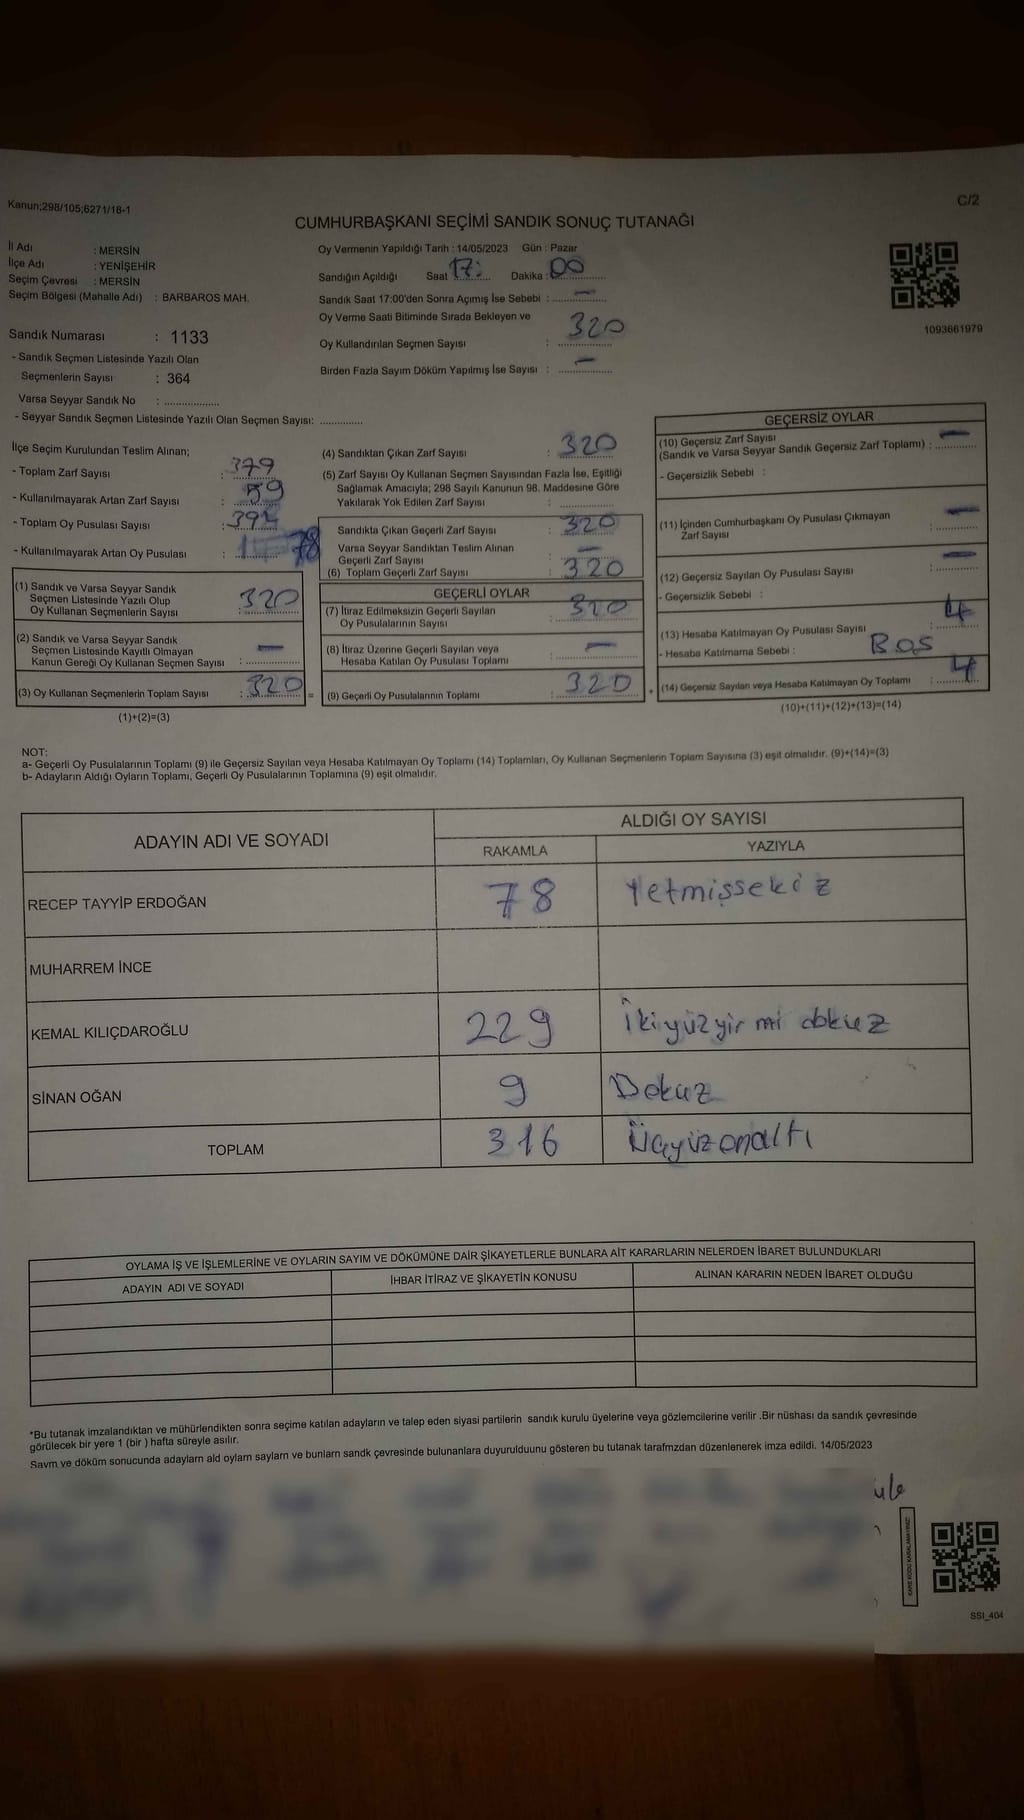 Kanun;298/105;6271/16-1
C/2
CUMHURBAŞKANI SEÇİMİ SANDIK SONUÇ TUTANAĞI
İl Adı : MERSİN
İlçe Adı : YENİŞEHİR
Seçim Çevresi : MERSİN
Seçim Bölgesi (Mahalle Adı) : BARBAROS MAH.
Sandık Numarası : 1133
- Sandık Seçmen Listesinde Yazılı Olan
Seçmenlerin Sayısı : 364
Varsa Seyyar Sandık No : ....................
- Seyyar Sandık Seçmen Listesinde Yazılı Olan Seçmen Sayısı: ...............
Oy Vermenin Yapıldığı Tarih : 14/05/2023 Gün : Pazar
Sandığın Açıldığı Saat 17: Dakika : 00
Sandık Saat 17:00'den Sonra Açımış İse Sebebi : —
Oy Verme Saati Bitiminde Sırada Bekleyen ve
Oy Kullandırılan Seçmen Sayısı : 320
Birden Fazla Sayım Döküm Yapılmış İse Sayısı : —
1093661979
İlçe Seçim Kurulundan Teslim Alınan;
- Toplam Zarf Sayısı : 379
- Kullanılmayarak Artan Zarf Sayısı : 59
- Toplam Oy Pusulası Sayısı :
- Kullanılmayarak Artan Oy Pusulası : 78
(1) Sandık ve Varsa Seyyar Sandık
Seçmen Listesinde Yazılı Olup
Oy Kullanan Seçmenlerin Sayısı : 320
(2) Sandık ve Varsa Seyyar Sandık
Seçmen Listesinde Kayıtlı Olmayan
Kanun Gereği Oy Kullanan Seçmen Sayısı : —
(3) Oy Kullanan Seçmenlerin Toplam Sayısı : 320 =
(1)+(2)=(3)
(4) Sandıktan Çıkan Zarf Sayısı : 320
(5) Zarf Sayısı Oy Kullanan Seçmen Sayısından Fazla İse, Eşitliği
Sağlamak Amacıyla; 298 Sayılı Kanunun 98. Maddesine Göre
Yakılarak Yok Edilen Zarf Sayısı : ..............
Sandıkta Çıkan Geçerli Zarf Sayısı : 320
Varsa Seyyar Sandıktan Teslim Alınan
Geçerli Zarf Sayısı : —
(6) Toplam Geçerli Zarf Sayısı : 320
GEÇERLİ OYLAR
(7) İtiraz Edilmeksizin Geçerli Sayılan
Oy Pusulalarının Sayısı : 320
(8) İtiraz Üzerine Geçerli Sayılan veya
Hesaba Katılan Oy Pusulası Toplamı : —
(9) Geçerli Oy Pusulalarının Toplamı : 320 +
GEÇERSİZ OYLAR
(10) Geçersiz Zarf Sayısı
(Sandık ve Varsa Seyyar Sandık Geçersiz Zarf Toplamı) : —
- Geçersizlik Sebebi :
(11) İçinden Cumhurbaşkanı Oy Pusulası Çıkmayan
Zarf Sayısı : —
(12) Geçersiz Sayılan Oy Pusulası Sayısı : —
- Geçersizlik Sebebi :
(13) Hesaba Katılmayan Oy Pusulası Sayısı : 4
- Hesaba Katılmama Sebebi : BOŞ
(14) Geçersiz Sayılan veya Hesaba Katılmayan Oy Toplamı : 4
(10)+(11)+(12)+(13)=(14)
NOT:
a- Geçerli Oy Pusulalarının Toplamı (9) ile Geçersiz Sayılan veya Hesaba Katılmayan Oy Toplamı (14) Toplamları, Oy Kullanan Seçmenlerin Toplam Sayısına (3) eşit olmalıdır. (9)+(14)=(3)
b- Adayların Aldığı Oyların Toplamı, Geçerli Oy Pusulalarının Toplamına (9) eşit olmalıdır.
ADAYIN ADI VE SOYADI
ALDIĞI OY SAYISI
RAKAMLA YAZIYLA
RECEP TAYYİP ERDOĞAN 78 Yetmişsekiz
MUHARREM İNCE
KEMAL KILIÇDAROĞLU 229 İkiyüzyirmi dokuz
SİNAN OĞAN 9 Dokuz
TOPLAM 316 Üçyüzonaltı
OYLAMA İŞ VE İŞLEMLERİNE VE OYLARIN SAYIM VE DÖKÜMÜNE DAİR ŞİKAYETLERLE BUNLARA AİT KARARLARIN NELERDEN İBARET BULUNDUKLARI
ADAYIN ADI VE SOYADI İHBAR İTİRAZ VE ŞİKAYETİN KONUSU ALINAN KARARIN NEDEN İBARET OLDUĞU
*Bu tutanak imzalandıktan ve mühürlendikten sonra seçime katılan adayların ve talep eden siyasi partilerin sandık kurulu üyelerine veya gözlemcilerine verilir .Bir nüshası da sandık çevresinde
görülecek bir yere 1 (bir ) hafta süreyle asılır.
Sayım ve döküm sonucunda adayların ald oyların sayları ve bunların sandk çevresinde bulunanlara duyurulduunu gösteren bu tutanak tarafmzdan düzenlenerek imza edildi. 14/05/2023
KARE KODU KARALAMAYINIZ!
SSI_404